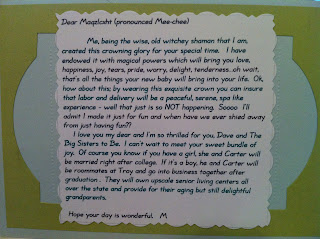 Dear Maqzlosht (pronounced Mee-chee)
Me, being the wise, old witchey shaman that I am,
created this crowning glory for your special time.  I have
endowed it with magical powers which will bring you love,
happiness, joy, tears, pride, worry, delight, tenderness..oh wait,
that's all the things your new baby will bring into your life.  Ok,
how about this; by wearing this exquisite crown you can insure
that labor and delivery will be a peaceful, serene, spa like
experience - well that just is so NOT happening.  Soooo  I'll
admit I made it just for fun and when have we ever shied away
from just having fun??
I love you my dear and I'm so thrilled for you, Dave and The
Big Sisters to Be.  I can't wait to meet your sweet bundle of
joy.  Of course you know if you have a girl, she and Carter will
be married right after college.  If it's a boy, he and Carter will
be roommates at Troy and go into business together after
graduation .  They will own upscale senior living centers all
over the state and provide for their aging but still delightful
grandparents.
Hope your day is wonderful,   M